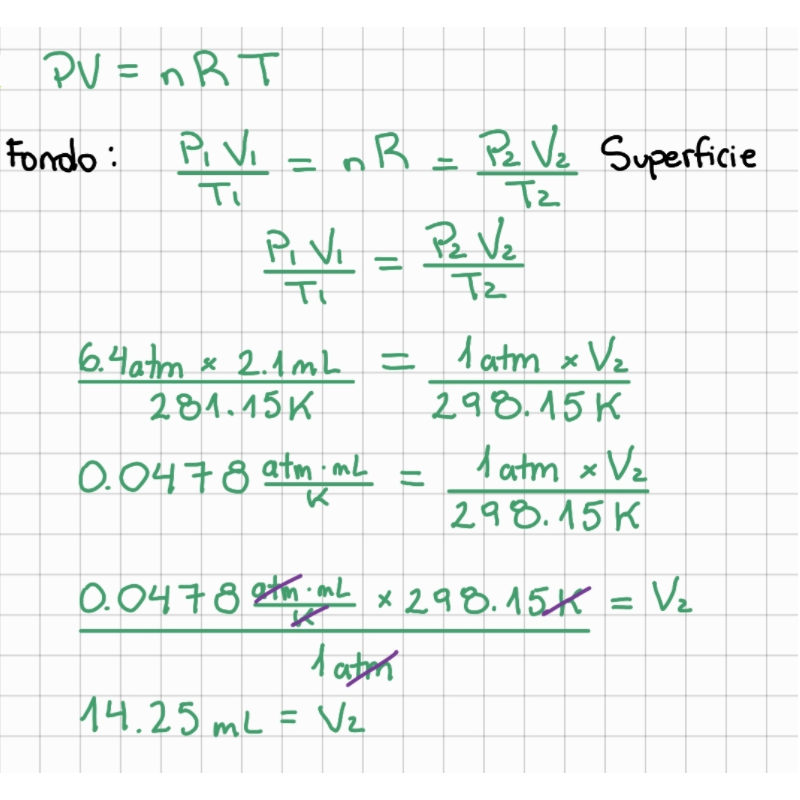 PV = nRT
Fondo: P₁V₁/T₁ = nR = P₂V₂/T₂ Superficie
P₁V₁/T₁ = P₂V₂/T₂
6.4atm × 2.1mL/281.15K = 1atm × V₂/298.15K
0.0478 atm·mL/K = 1atm × V₂/298.15K
0.0478 atm·mL/K × 298.15K/1atm = V₂
14.25mL = V₂